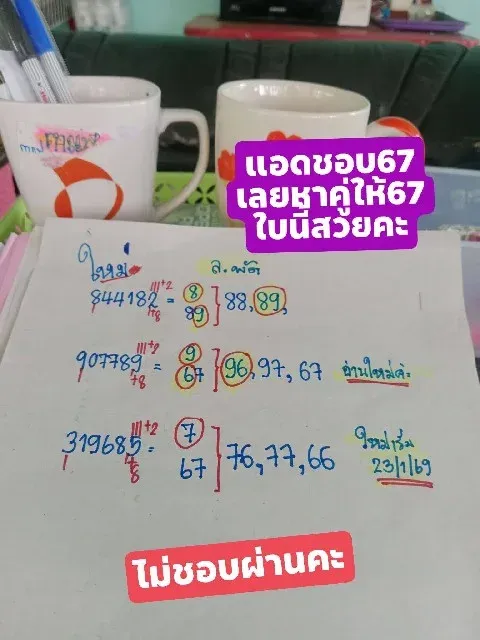 แอดชอบ67
เลยหาคู่ให้67
ใบนี้สวยคะ
ใหม่ ล.พัด
111+2
844182 = 8 89 88, 89,
+8
111+2
907789 = 9 67 96, 97, 67 อ่านใหม่ค่ะ
+8
111+2
319685 = 7 67 76, 77, 66 ใหม่เริ่ม
23/1/69
8
ไม่ชอบผ่านคะ